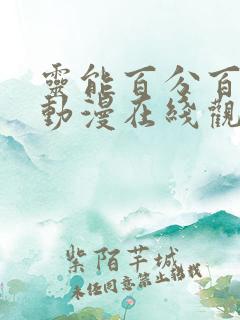 靈能百分百
動漫在綫觀
紫陌芊城
未经同意禁止转载